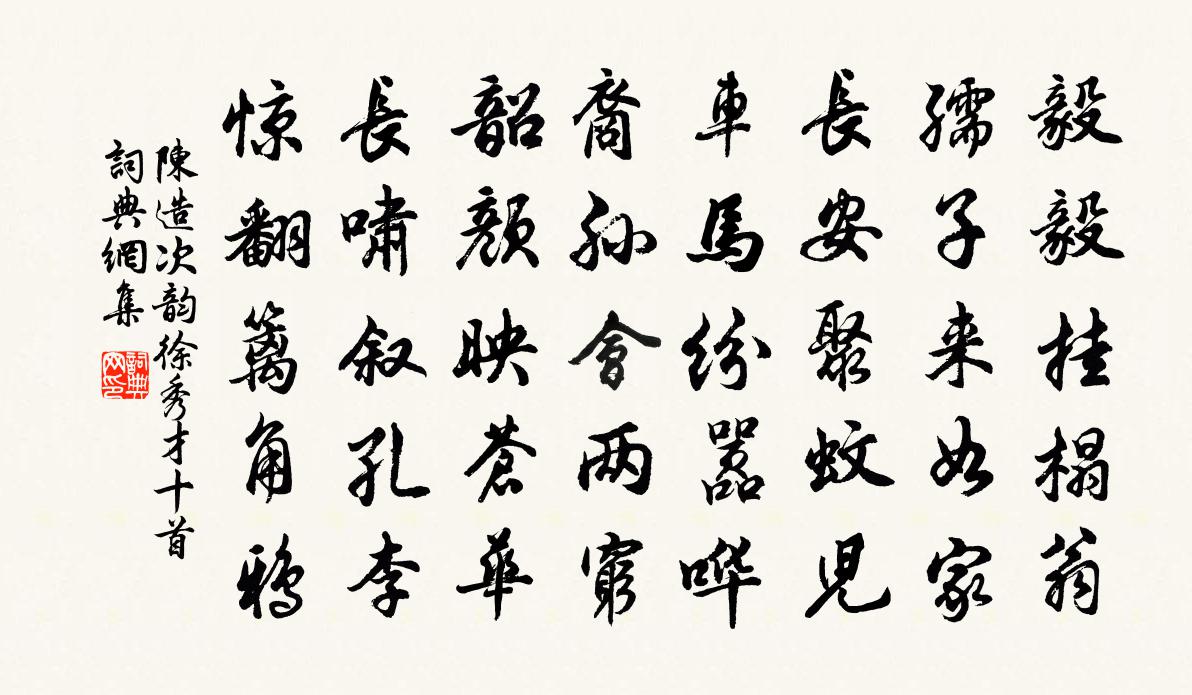 毅毅挂榻翁
孺子来如家
長安聚蚊児
車馬紛嚣哗
裔孙會两窮
韶颜映蒼華
長啸叙孔李
惊翻篱角鸦
陳造次韵徐秀才十首
詞典網集
詞典网印